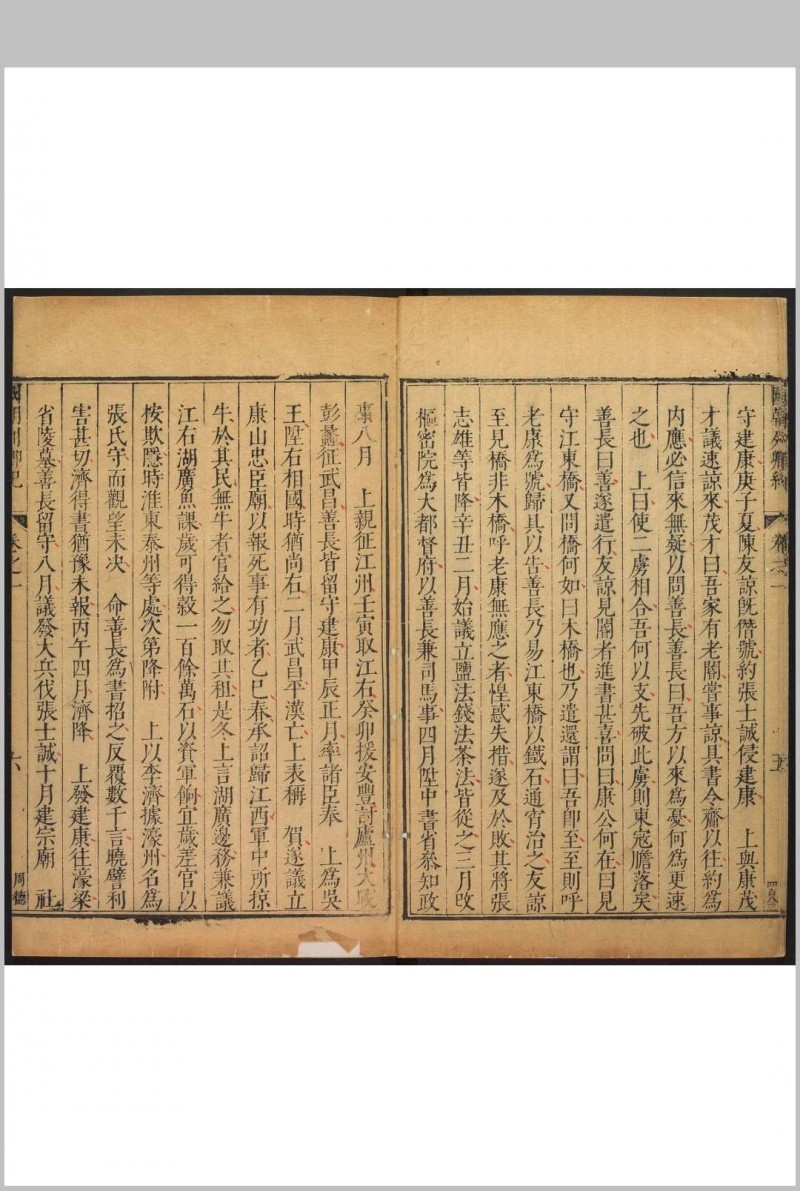 守建康庚子夏陳友諒旣僭號約張士誠侵建康　上與康茂
才議速諒來茂才曰吾家有老閽嘗事諒具書令齎以往約為
内應必信來無疑以問善長善長曰吾方以來為憂何為更速
之也　上曰使二虜相合吾何以支先破此虜則東寇膽落矣
善長曰善遂遣行友諒見閽者進書甚喜問曰康公何在曰見
守江東橋又問橋何如曰木橋也乃遣還謂曰吾卽至至則呼
老康為號歸具以告善長乃易江東橋以鐵石通宵治之友諒
至見橋非木橋呼老康無應之者惶惑失措遂及於敗其將張
志雄等皆降辛丑二月始議立鹽法錢法茶法皆從之三月改
樞密院為大都督府以善長兼司馬事四月陞中書省叅知政
五
事八月　上親征江州壬寅取江右癸卯援安豐討廬州大戰
彭蠡征武昌善長皆留守建康甲辰正月率諸臣奉　上為吳
王陞右相國時猶尚右二月武昌平漢亡上表稱　賀遂議立
康山忠臣廟以報死事有功者乙巳春承詔歸江西軍中所掠
牛於其民無牛者官給之勿取其租是冬上言湖廣邊務兼議
江右湖廣魚課歲可得穀一百餘萬石以資軍餉宜歲差官以
按欺隱時淮東泰州等處次第降附　上以李濟據濠州名為
張氏守而觀望未決　命善長為書招之反覆數千言曉譬利
害甚切濟得書猶豫未報丙午四月濟降　上發建康往濠梁
省陵墓善長留守八月議發大兵伐張士誠十月建宗廟　社
卷之一
六
周德